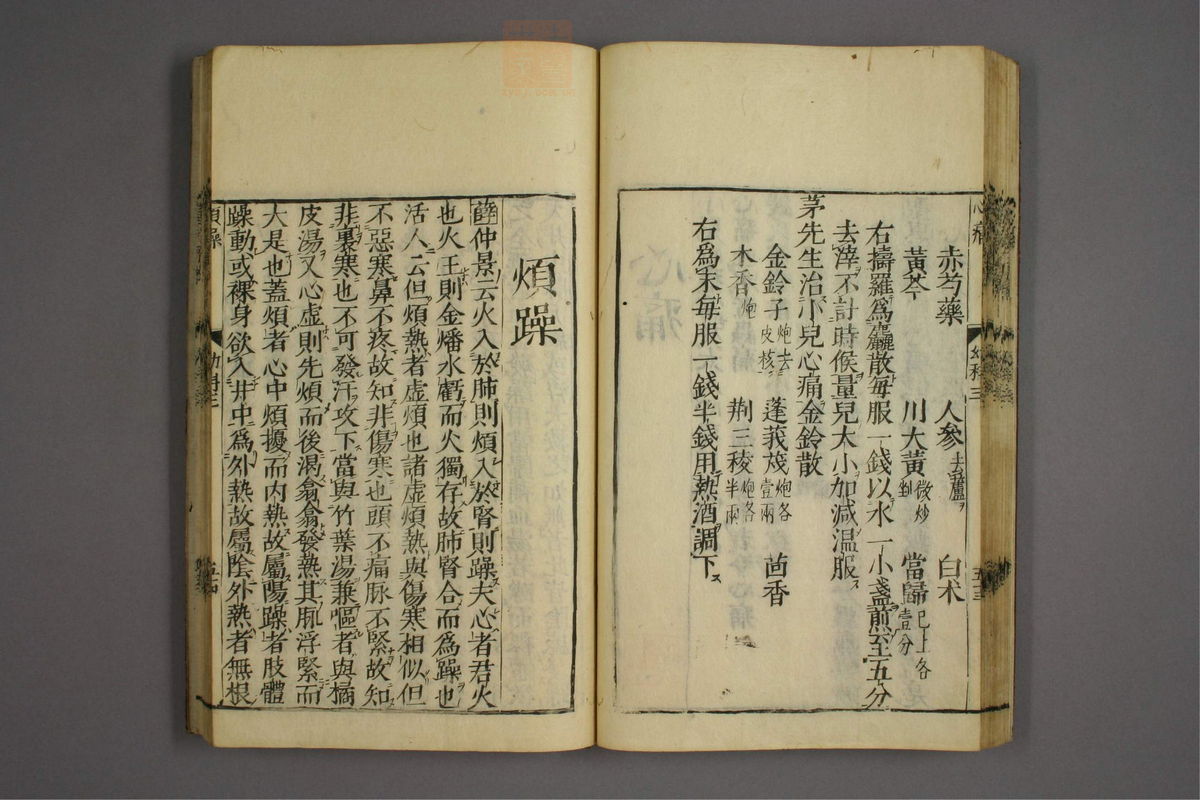 赤芍藥 人參去蘆 白朮
黃芩 川大黃微炒剉 當歸已上各壹分
右擣羅爲麤散每服一錢以水一小盞煎至五分
去滓不計時候量兒大小加減温服
茅先生治小兒心痛金鈴散
金鈴子炮去皮核 蓬莪茂炮各壹兩 茴香
木香炮 荆三稜炮各半兩
右爲末每服一錢半錢用熱酒調下
心痛 幼科三 五十三
煩躁
薛仲景云火入於肺則煩入於腎則躁夫心者君火
也火王則金燔水虧而火獨存故肺腎合而爲躁也
活人云但煩熱者虚煩也諸虚煩熱與傷寒相似但
不惡寒鼻不疼故知非傷寒也頭不痛脉不緊故知
非裏寒也不可發汗攻下當與竹葉湯兼嘔者與橘
皮湯又心虚則先煩而後渴翕翕發熱其脈浮緊而
大是也蓋煩者心中煩擾而内熱故屬陽躁者肢體
躁動或裸身欲入井中爲外熱故屬陰外熱者無根
煩躁 幼科三 五十四